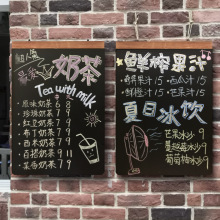 奶茶
Tea with milk
原味奶茶 6 8
珍珠奶茶 7 9
红豆奶茶 7 9
布丁奶茶 7 9
西米奶茶 7 9
百搭奶茶 9 11
茉香奶茶 7 9
鲜榨果汁
奇异果汁 15
西瓜汁 15
鲜橙汁 15
夏日冰饮
芒果冰沙 9
蔓越莓冰沙 9
葡萄柚冰沙 9